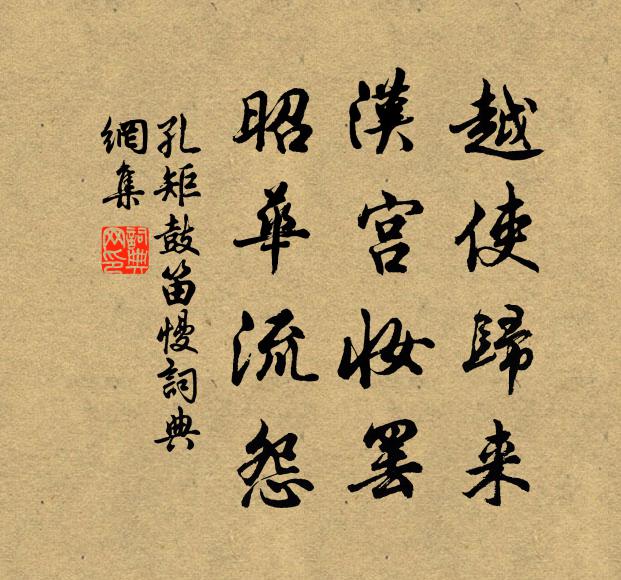 越使歸来
漢宫妆罢
昭華流怨
孔矩鼓笛慢詞典
網集
詞典网印